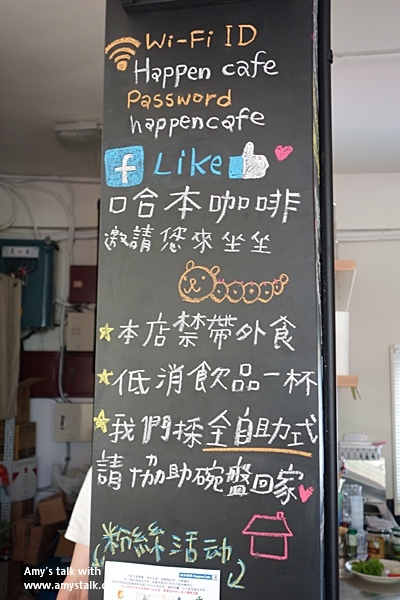 Wi-Fi ID
Happen cafe
Password
happencafe
f Like
哈本咖啡
邀請您來坐坐
本店禁帶外食
低消飲品一杯
我們採全自助式
請協助碗盤回家
(粉絲活動)
Amy's talk with
www.amystalk.c